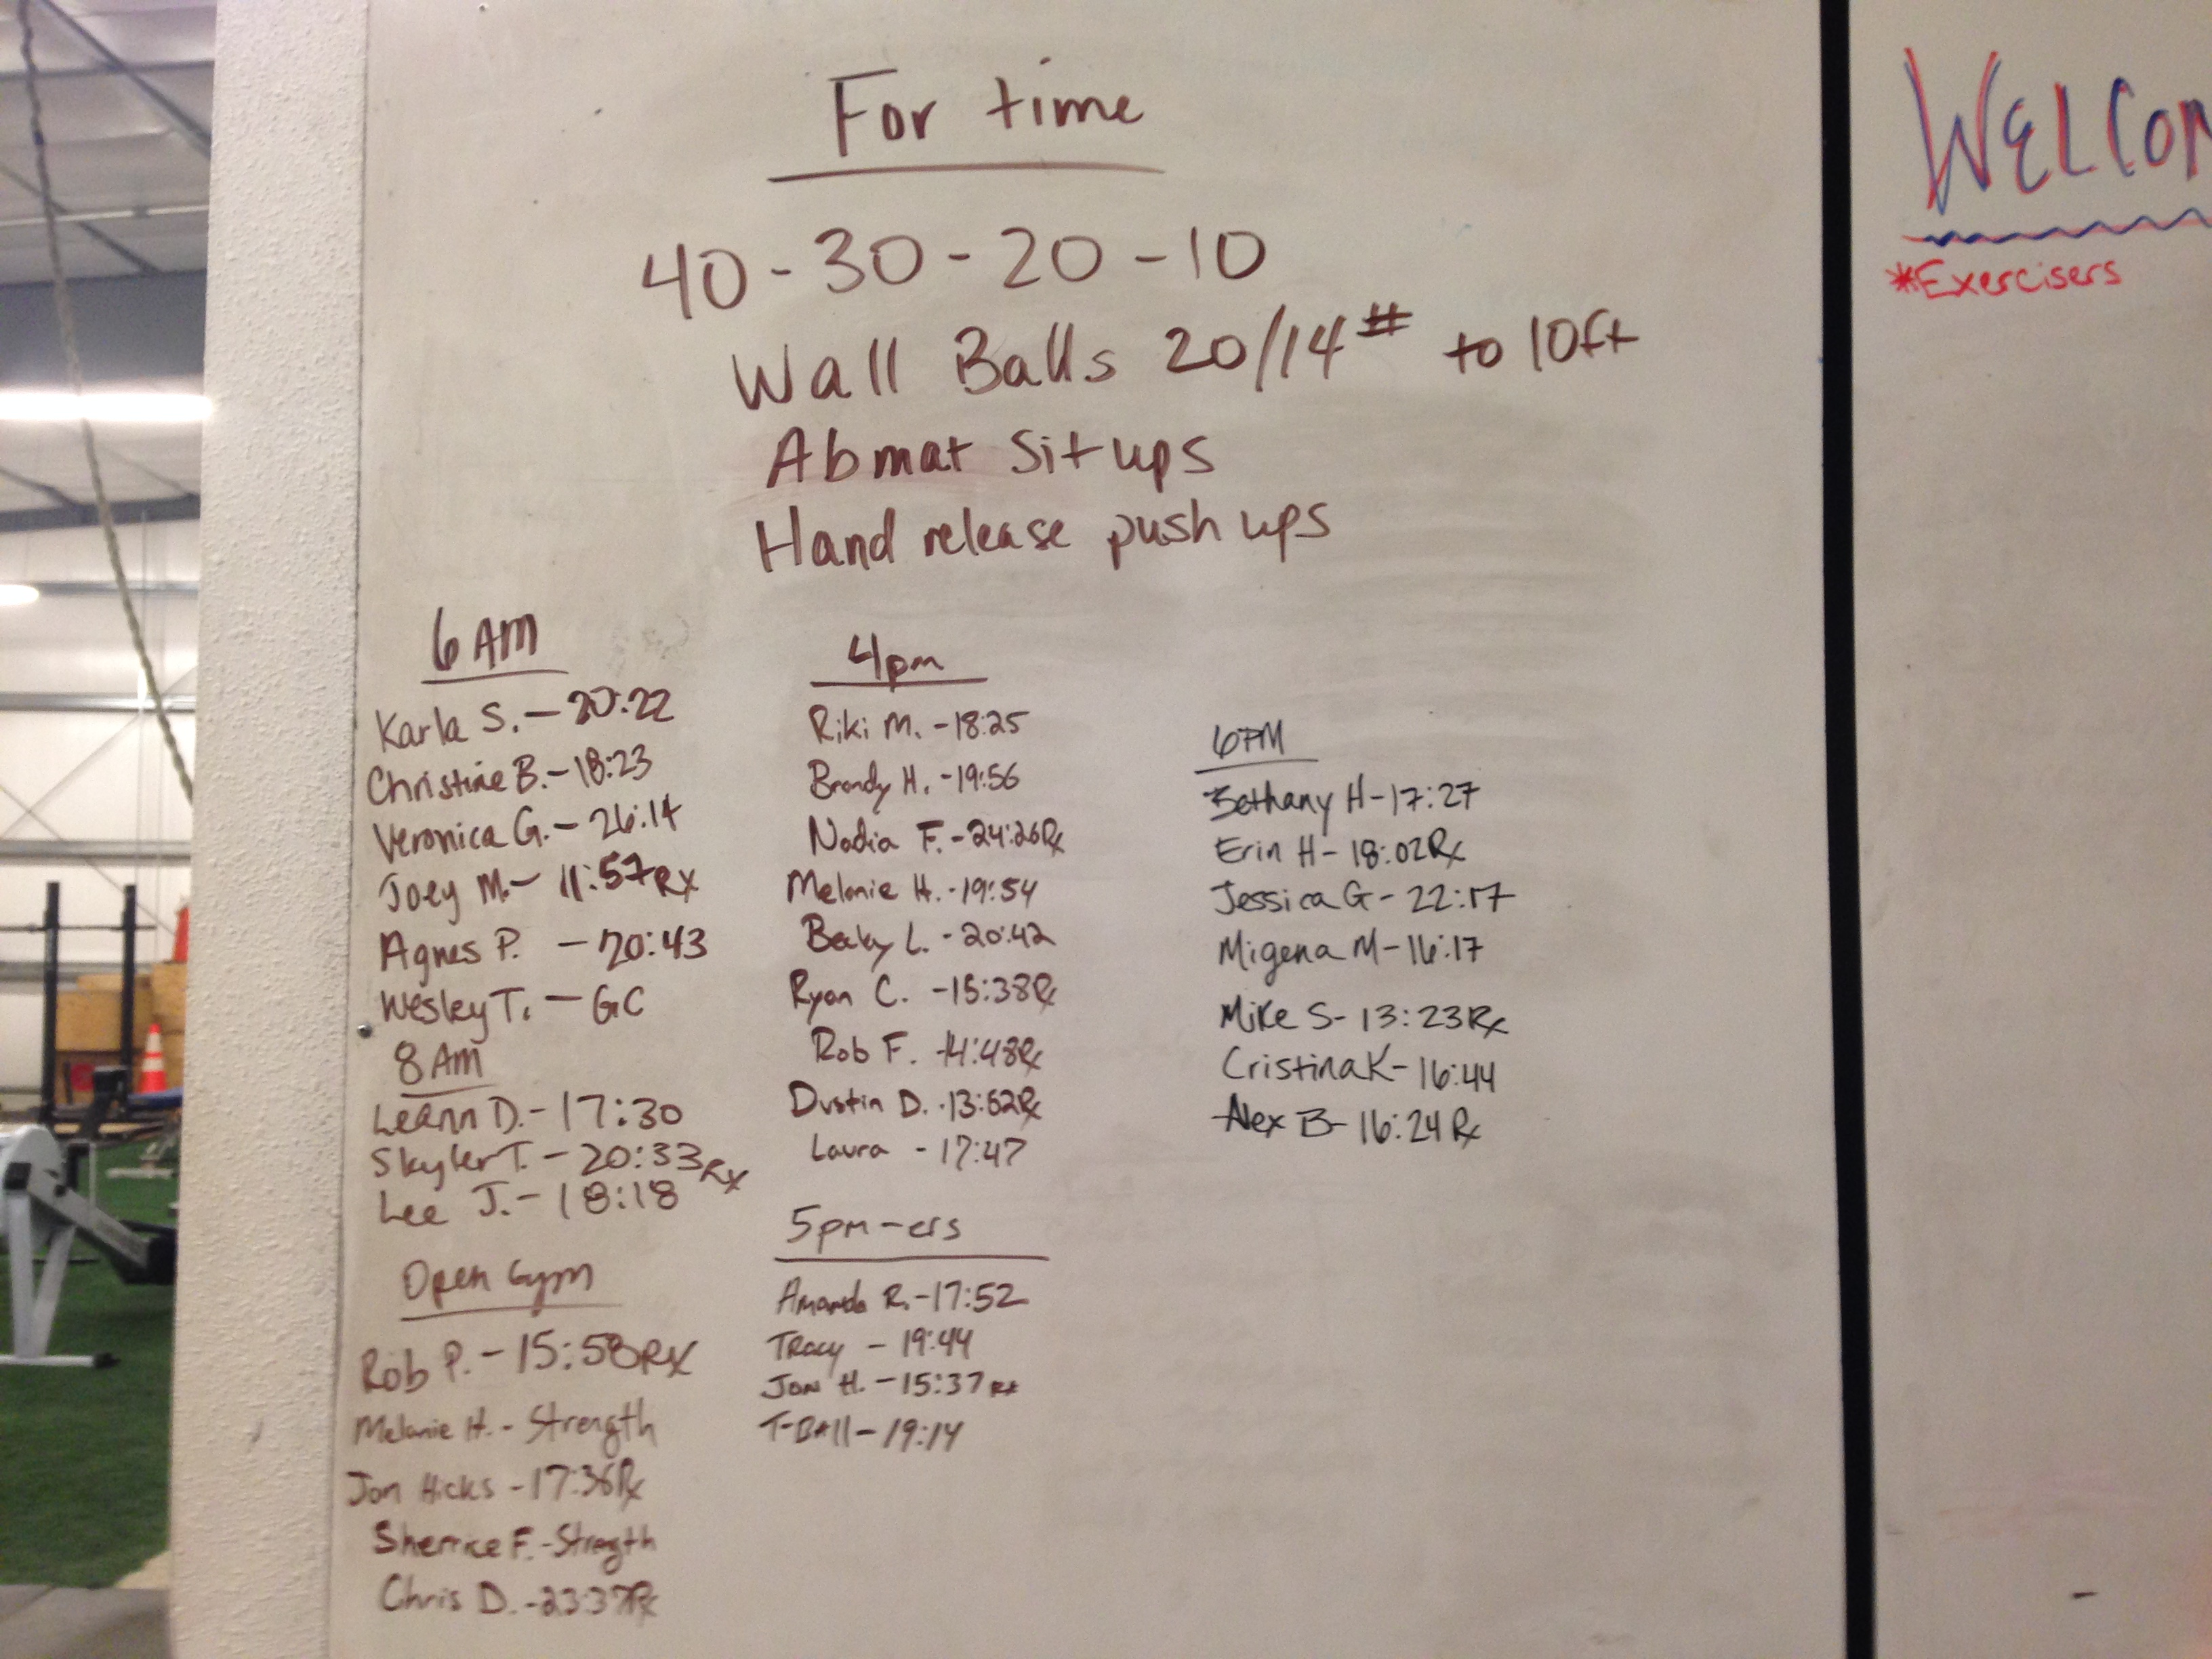 For time
40 - 30 - 20 - 10
Wall Balls 20/14# to 10ft
Abmat Situps
Hand release push ups
6 AM
Karla S. - 20:22
Christine B. - 18:23
Veronica G. - 26:14
Joey M. - 11:57 Rx
Agnes P. - 20:43
Wesley T. - GC
8 AM
Leann D. - 17:30
Skyler T. - 20:33 Rx
Lee J. - 18:18
Open Gym
Rob P. - 15:58 Rx
Melanie H. - Strength
Jon Hicks - 17:36 Rx
Sherrice F. - Strength
Chris D. - 23:37 Rx
4pm
Riki M. - 18:25
Brandy H. - 19:56
Nadia F. - 24:26 Rx
Melanie H. - 19:54
Becky L. - 20:42
Ryan C. - 15:38 Rx
Rob F. - 14:48 Rx
Dustin D. - 13:52 Rx
Laura - 17:47
5pm-ers
Amanda R. - 17:52
Tracy - 19:44
Jon H. - 15:37 Rx
T-Ball - 19:14
6PM
Bethany H - 17:27
Erin H - 18:02 Rx
Jessica G - 22:17
Migena M - 16:17
Mike S - 13:23 Rx
Cristina K - 16:44
Alex B - 16:24 Rx
*Exercisers